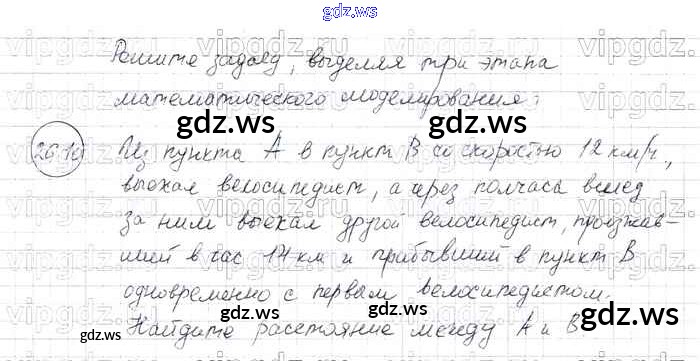 gdz.ws
Решите задачу, выделяя три этапа
математического моделирования:
gdz.ws gdz.ws
26.10 Из пункта А в пункт В со скоростью 12 км/ч,
выехал велосипедист, а через полчаса вслед
за ним выехал другой велосипедист, проезжав-
ший в час 14 км и прибывший в пункт В
одновременно с первым велосипедистом.
gdz.ws gdz.ws
Найдите расстояние между А и В
gdz.ws